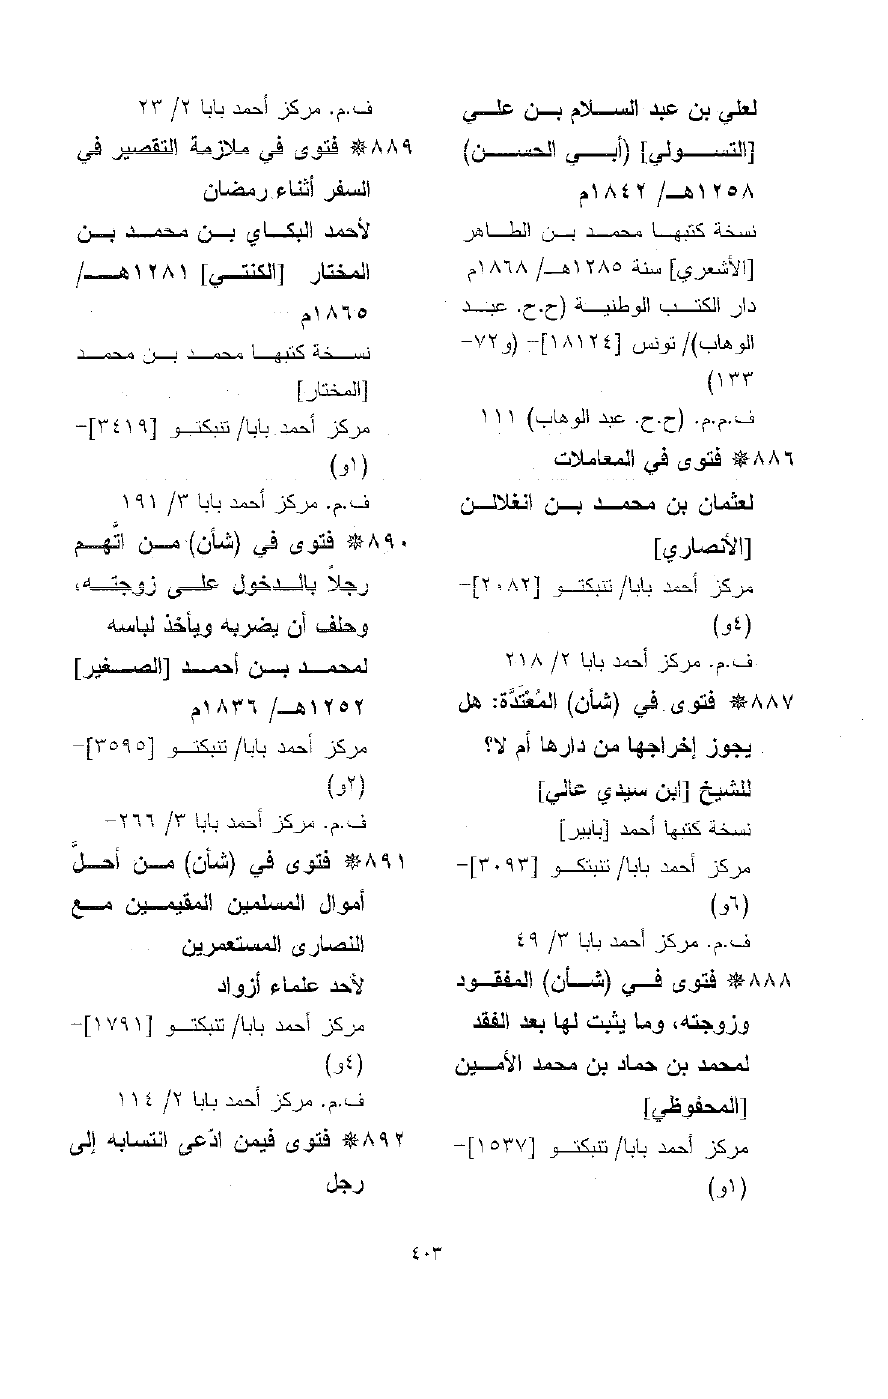 لعلي بن عبد السلام بن علي
[التسولي] (أبي الحسن)
١٢٥٨هـ/ ١٨٤٢م
نسخة كتبها محمد بن الطاهر
[الأشعري] سنة ١٢٨٥هـ/ ١٨٦٨م
دار الكتب الوطنية (ح.ح. عبد
الوهاب)/ تونس [١٨١٢٤]- (و٧٢-
١٣٣)
ف.م.م. (ح.ح. عبد الوهاب) ١١١
٨٨٦* فتوى في المعاملات
لعثمان بن محمد بن انغلالن
[الأنصاري]
مركز أحمد بابا/ تنبكتو [٢٠٨٢]-
(٤و)
ف.م. مركز أحمد بابا ٢/ ٢١٨
٨٨٧* فتوى في (شأن) المُعْتَدَّة: هل
يجوز إخراجها من دارها أم لا؟
للشيخ [ابن سيدي عالي]
نسخة كتبها أحمد [بابير]
مركز أحمد بابا/ تنبكتو [٣٠٩٣]-
(٦و)
ف.م. مركز أحمد بابا ٣/ ٤٩
٨٨٨* فتوى في (شأن) المفقود
وزوجته، وما يثبت لها بعد الفقد
لمحمد بن حماد بن محمد الأمين
[المحفوظي]
مركز أحمد بابا/ تنبكتو [١٥٣٧]-
(١و)
ف.م. مركز أحمد بابا ٢/ ٢٣
٨٨٩* فتوى في ملازمة التقصير في
السفر أثناء رمضان
لأحمد البكاي بن محمد بن
المختار [الكنتي] ١٢٨١هـ/
١٨٦٥م
نسخة كتبها محمد بن محمد
[المختار]
مركز أحمد بابا/ تنبكتو [٣٤١٩]-
(١و)
ف.م. مركز أحمد بابا ٣/ ١٩١
٨٩٠* فتوى في (شأن) من اتَّهم
رجلاً بالدخول على زوجته،
وحلف أن يضربه ويأخذ لباسه
لمحمد بن أحمد [الصغير]
١٢٥٢هـ/ ١٨٣٦م
مركز أحمد بابا/ تنبكتو [٣٥٩٥]-
(٢و)
ف.م. مركز أحمد بابا ٣/ ٢٦٦-
٨٩١* فتوى في (شأن) من أحلَّ
أموال المسلمين المقيمين مع
النصارى المستعمرين
لأحد علماء أزواد
مركز أحمد بابا/ تنبكتو [١٧٩١]-
(٤و)
ف.م. مركز أحمد بابا ٢/ ١١٤
٨٩٢* فتوى فيمن ادّعى انتسابه إلى
رجل
٤٠٣